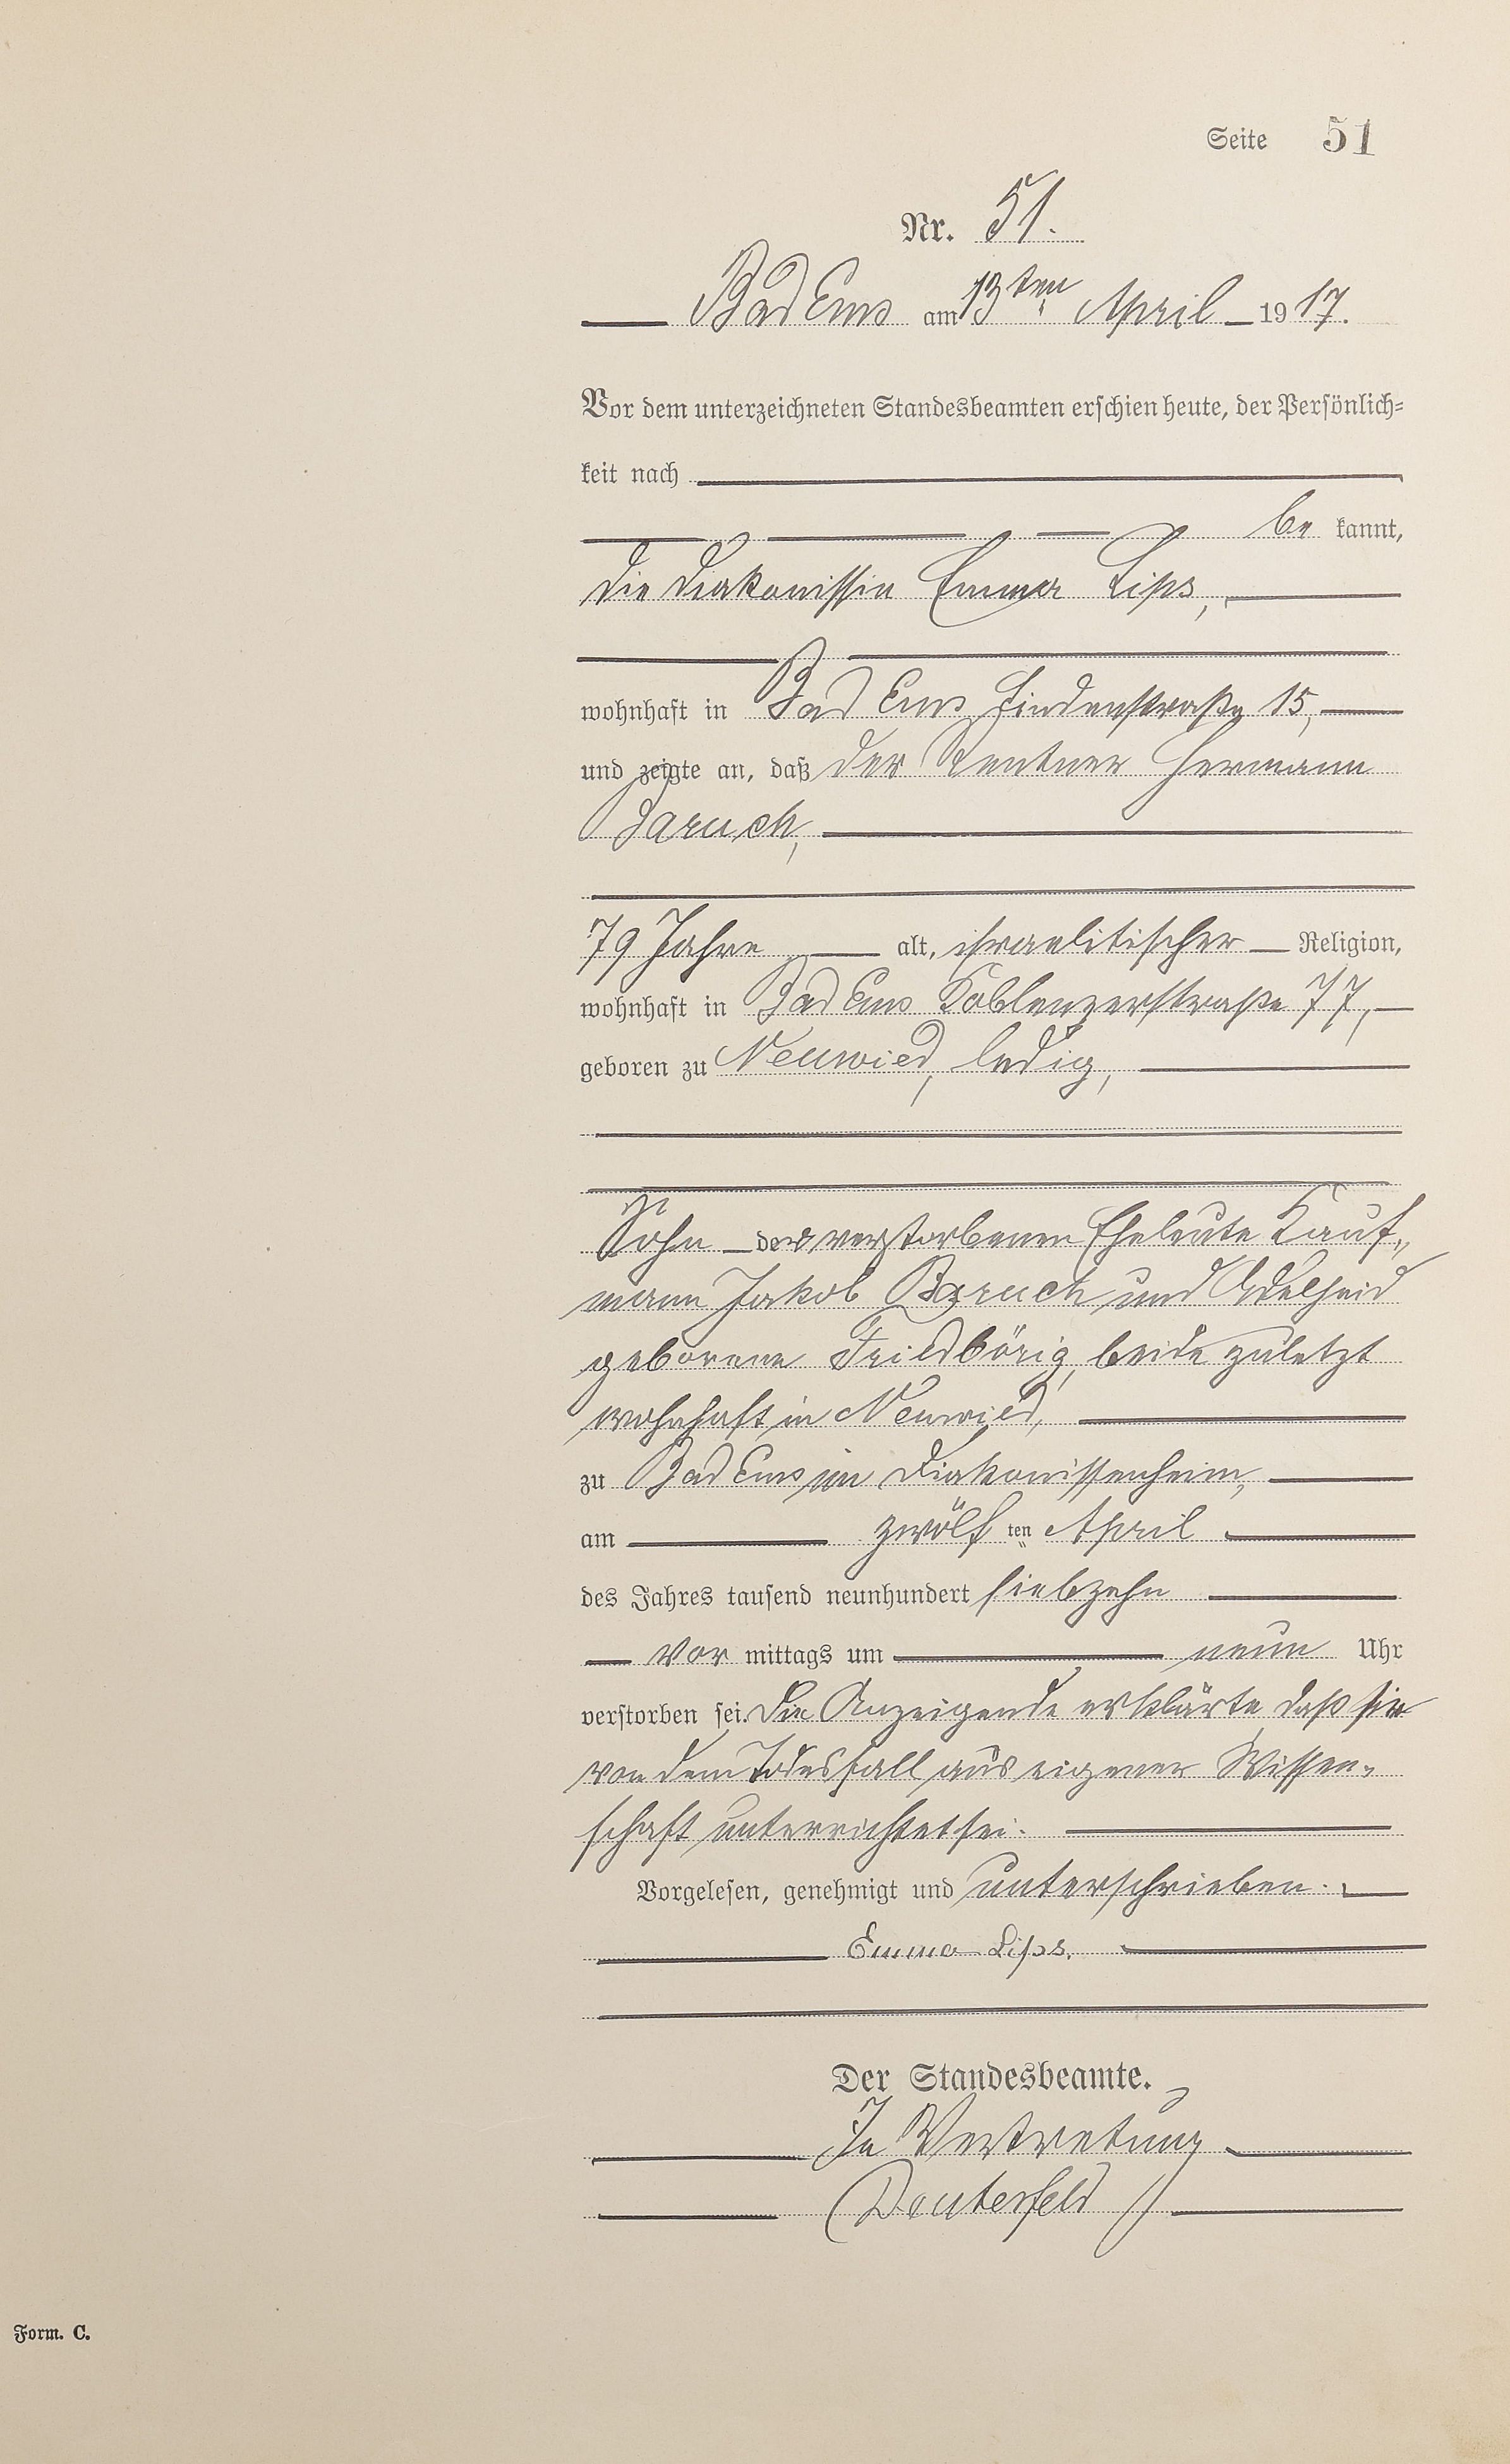 Seite 51
Nr. 51.
Bad Ems am 13ten April 1917.
Vor dem unterzeichneten Standesbeamten erschien heute, der Persönlich-
keit nach
be kannt,
die Diakonissin Emma Lips,
wohnhaft in Bad Ems, Lindenstraße 15,
und zeigte an, daß der Rentner Hermann
Baruch,
79 Jahre alt, israelitischer Religion,
wohnhaft in Bad Ems Koblenzerstraße 77,
geboren zu Neuwied, ledig,
Sohn der verstorbenen Eheleute Kauf-
mann Jakob Baruch und Adelheid
geborene Friedbörig, beide zuletzt
wohnhaft in Neuwied,
zu Bad Ems im Diakonissenheim,
am zwölf ten April
des Jahres tausend neunhundert siebzehn
vor mittags um neun Uhr
verstorben sei. Die Anzeigende erklärte, daß sie
von dem Todesfall aus eigener Wissen-
schaft unterrichtet sei.
Vorgelesen, genehmigt und unterschrieben.
Emma Lips.
Der Standesbeamte.
In Vertretung
Form. C.